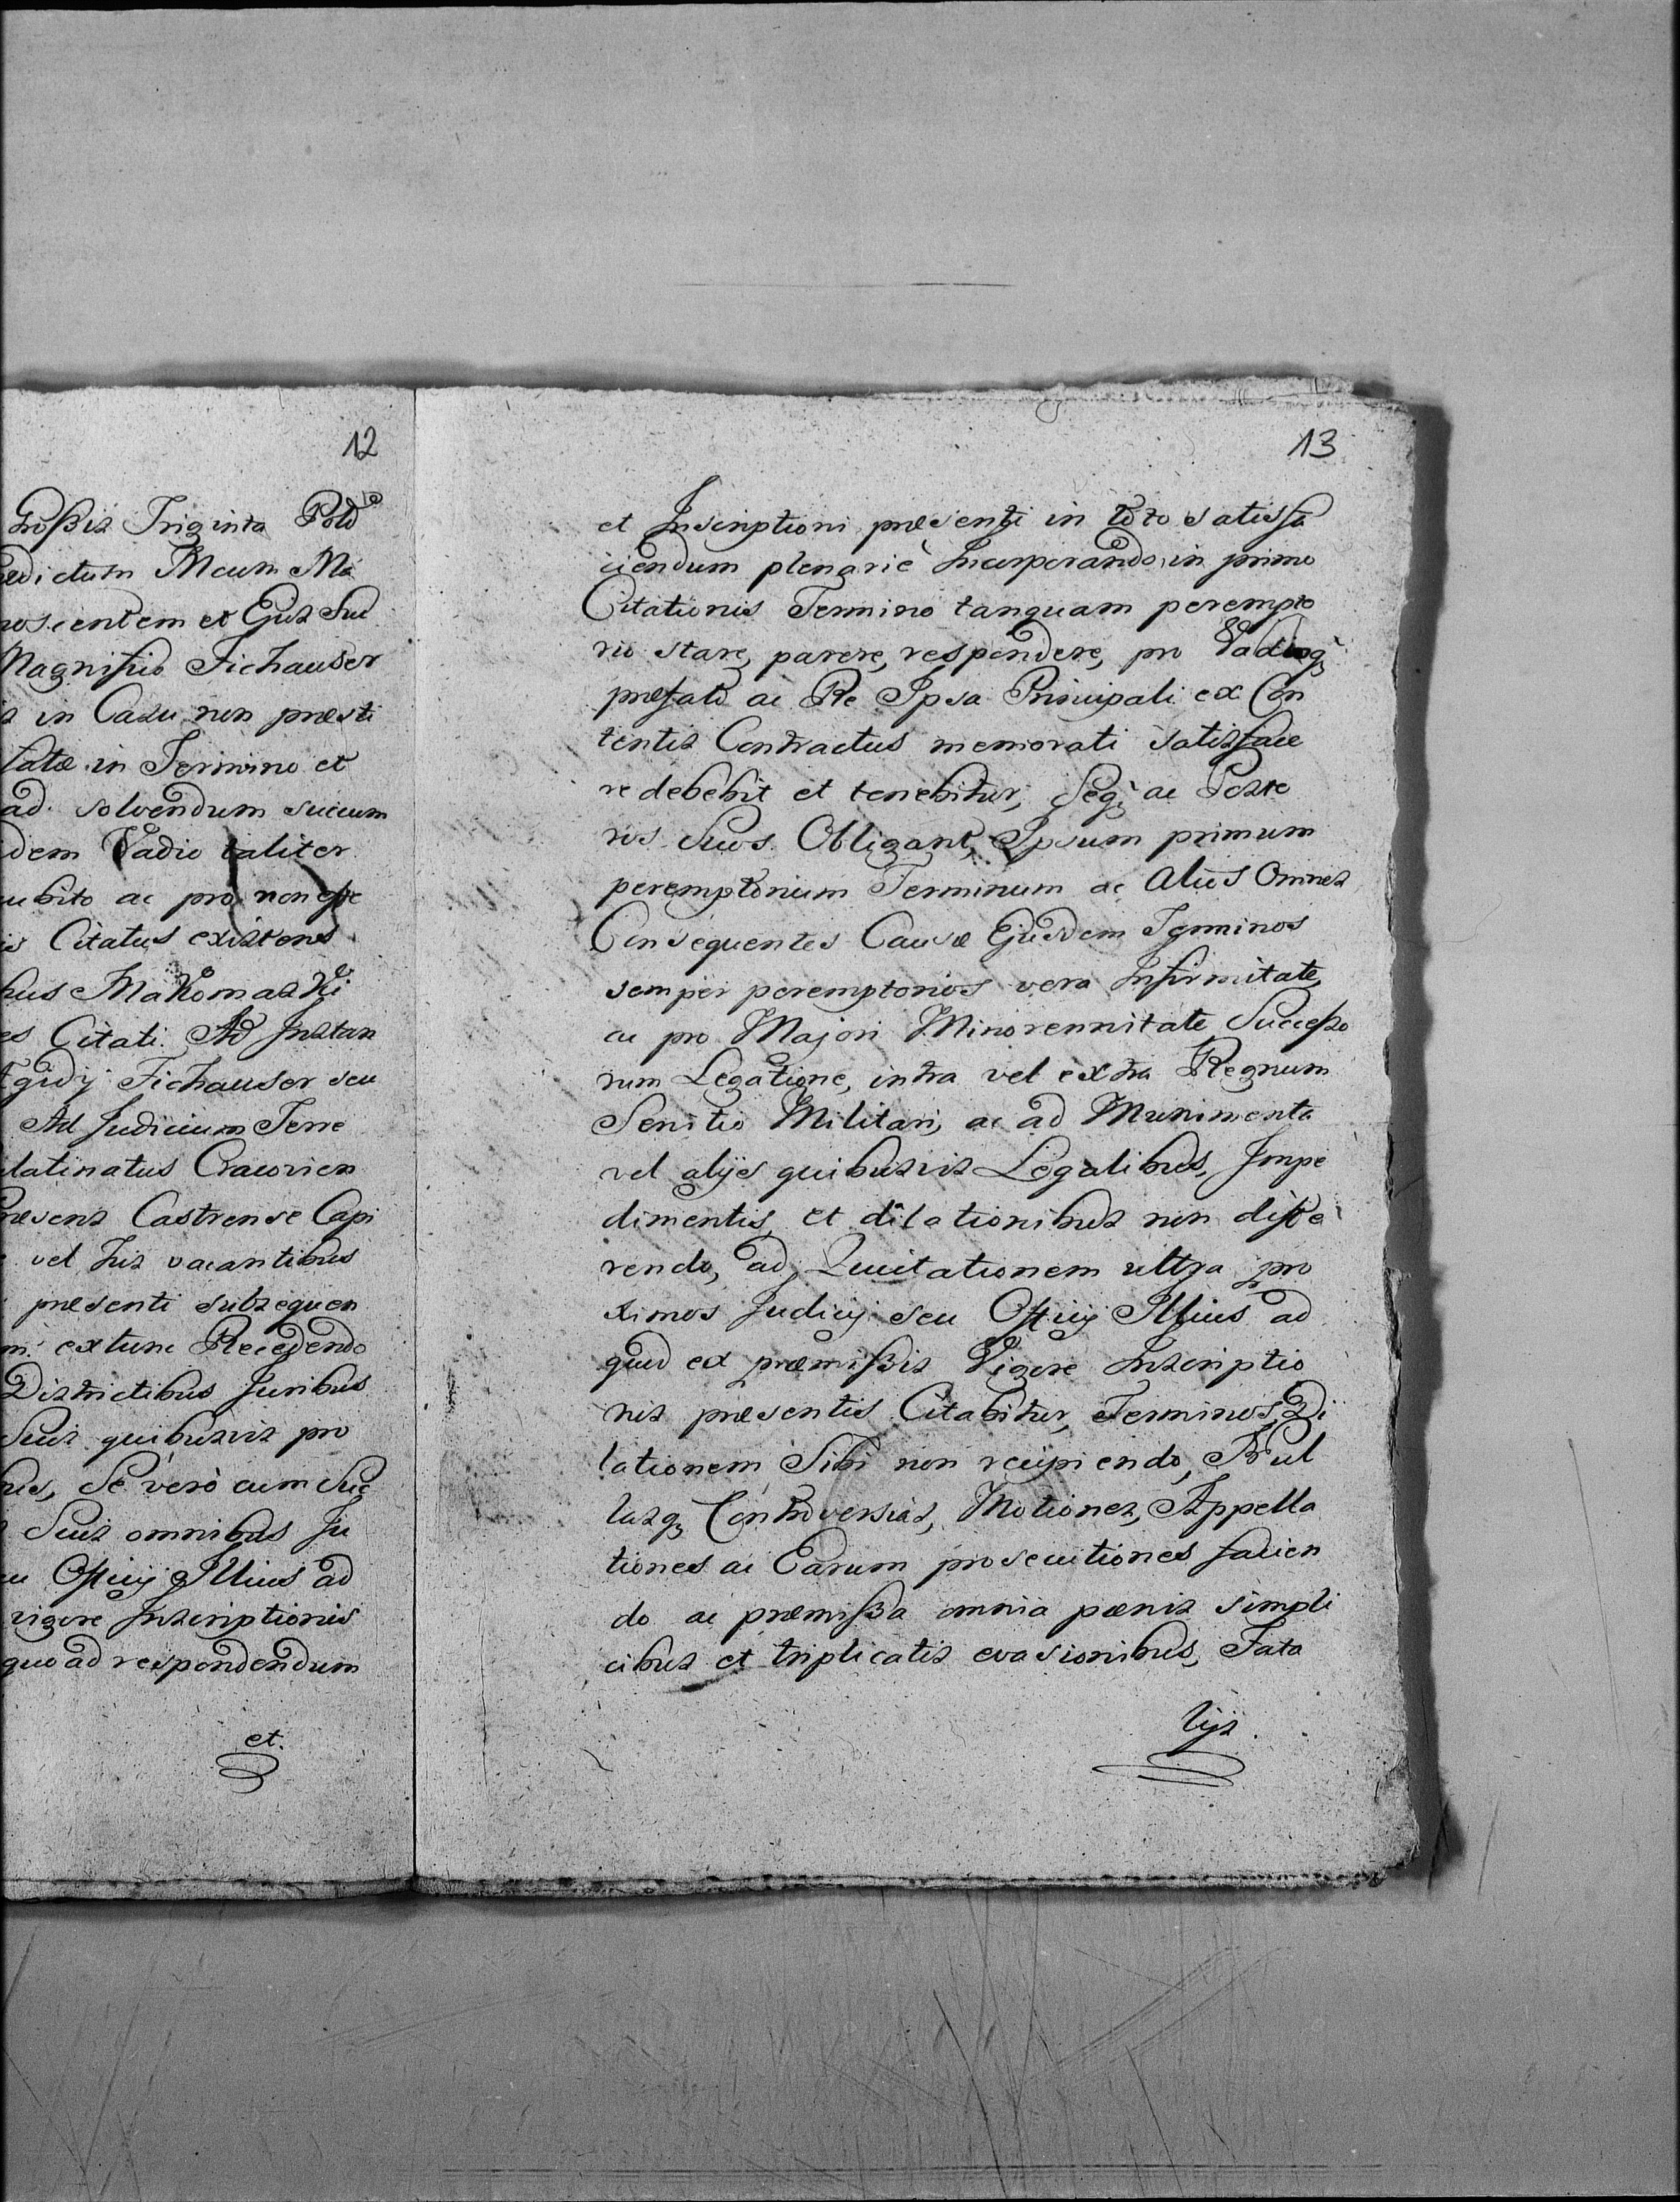 12
Großis Triginta Pold
edictum Meum Ma
noscentem et Ejus Suc
Magnifico Fichauser
s in Casu non præsti
latæ in Termino et
ad solvendum succum
dem Vadio taliter
ubito ac pro non esse
is Citatus existens
bus Makomaski
es Citati. Ad Instan
gidij Fichauser seu
Ad Judicium Terre
latinatus Cracovien
Præsens Castrense Capi
vel his vacantibus
præsenti subsequen
m extunc Recedendo
Districtibus Juribus
Suis quibusvis pro
bus, Se verò cum Suc
Suis omnibus Ju
u Officij Illius ad
vigore Inscriptionis
quo ad respondendum
et.
13
et Inscriptioni præsenti in toto satisfa
ciendum plenariè Incorporando, in primo
Citationis Termino tanquam perempto
rio stare, parere, respondere, pro Vadioq;
præfato ac Re Ipsa Principali ex Con
tentis Contractus memorati satisface
re debebit et tenebitur, Seq; ac Poste
ros Suos Obligant, Ipsum primum
peremptorium Terminum ac Alios Omnes
Consequentes Causæ Ejusdem Terminos
semper peremptorios vera Infirmitate,
ac pro Majori Minorennitate Succeßo
rum Legatione, intra vel extra Regnum
Servitio Militari, ac ad Munimenta
vel alijs quibusvis Legalibus, Impe
dimentis, et dilationibus non diffe
rendo, ad Quietationem ultra pro
ximos Judicij seu Officij Illius ad
quod ex præmißis Vigore Inscriptio
nis præsentis Citabitur, Terminos, Di
lationem Sibi non recipiendo, Nul
lasq; Controversias, Motiones, Appella
tiones ac Earum prosecutiones facien
do ac præmißa omnia pænis simpli
cibus et triplicatis evasionibus, Fata
lijs.